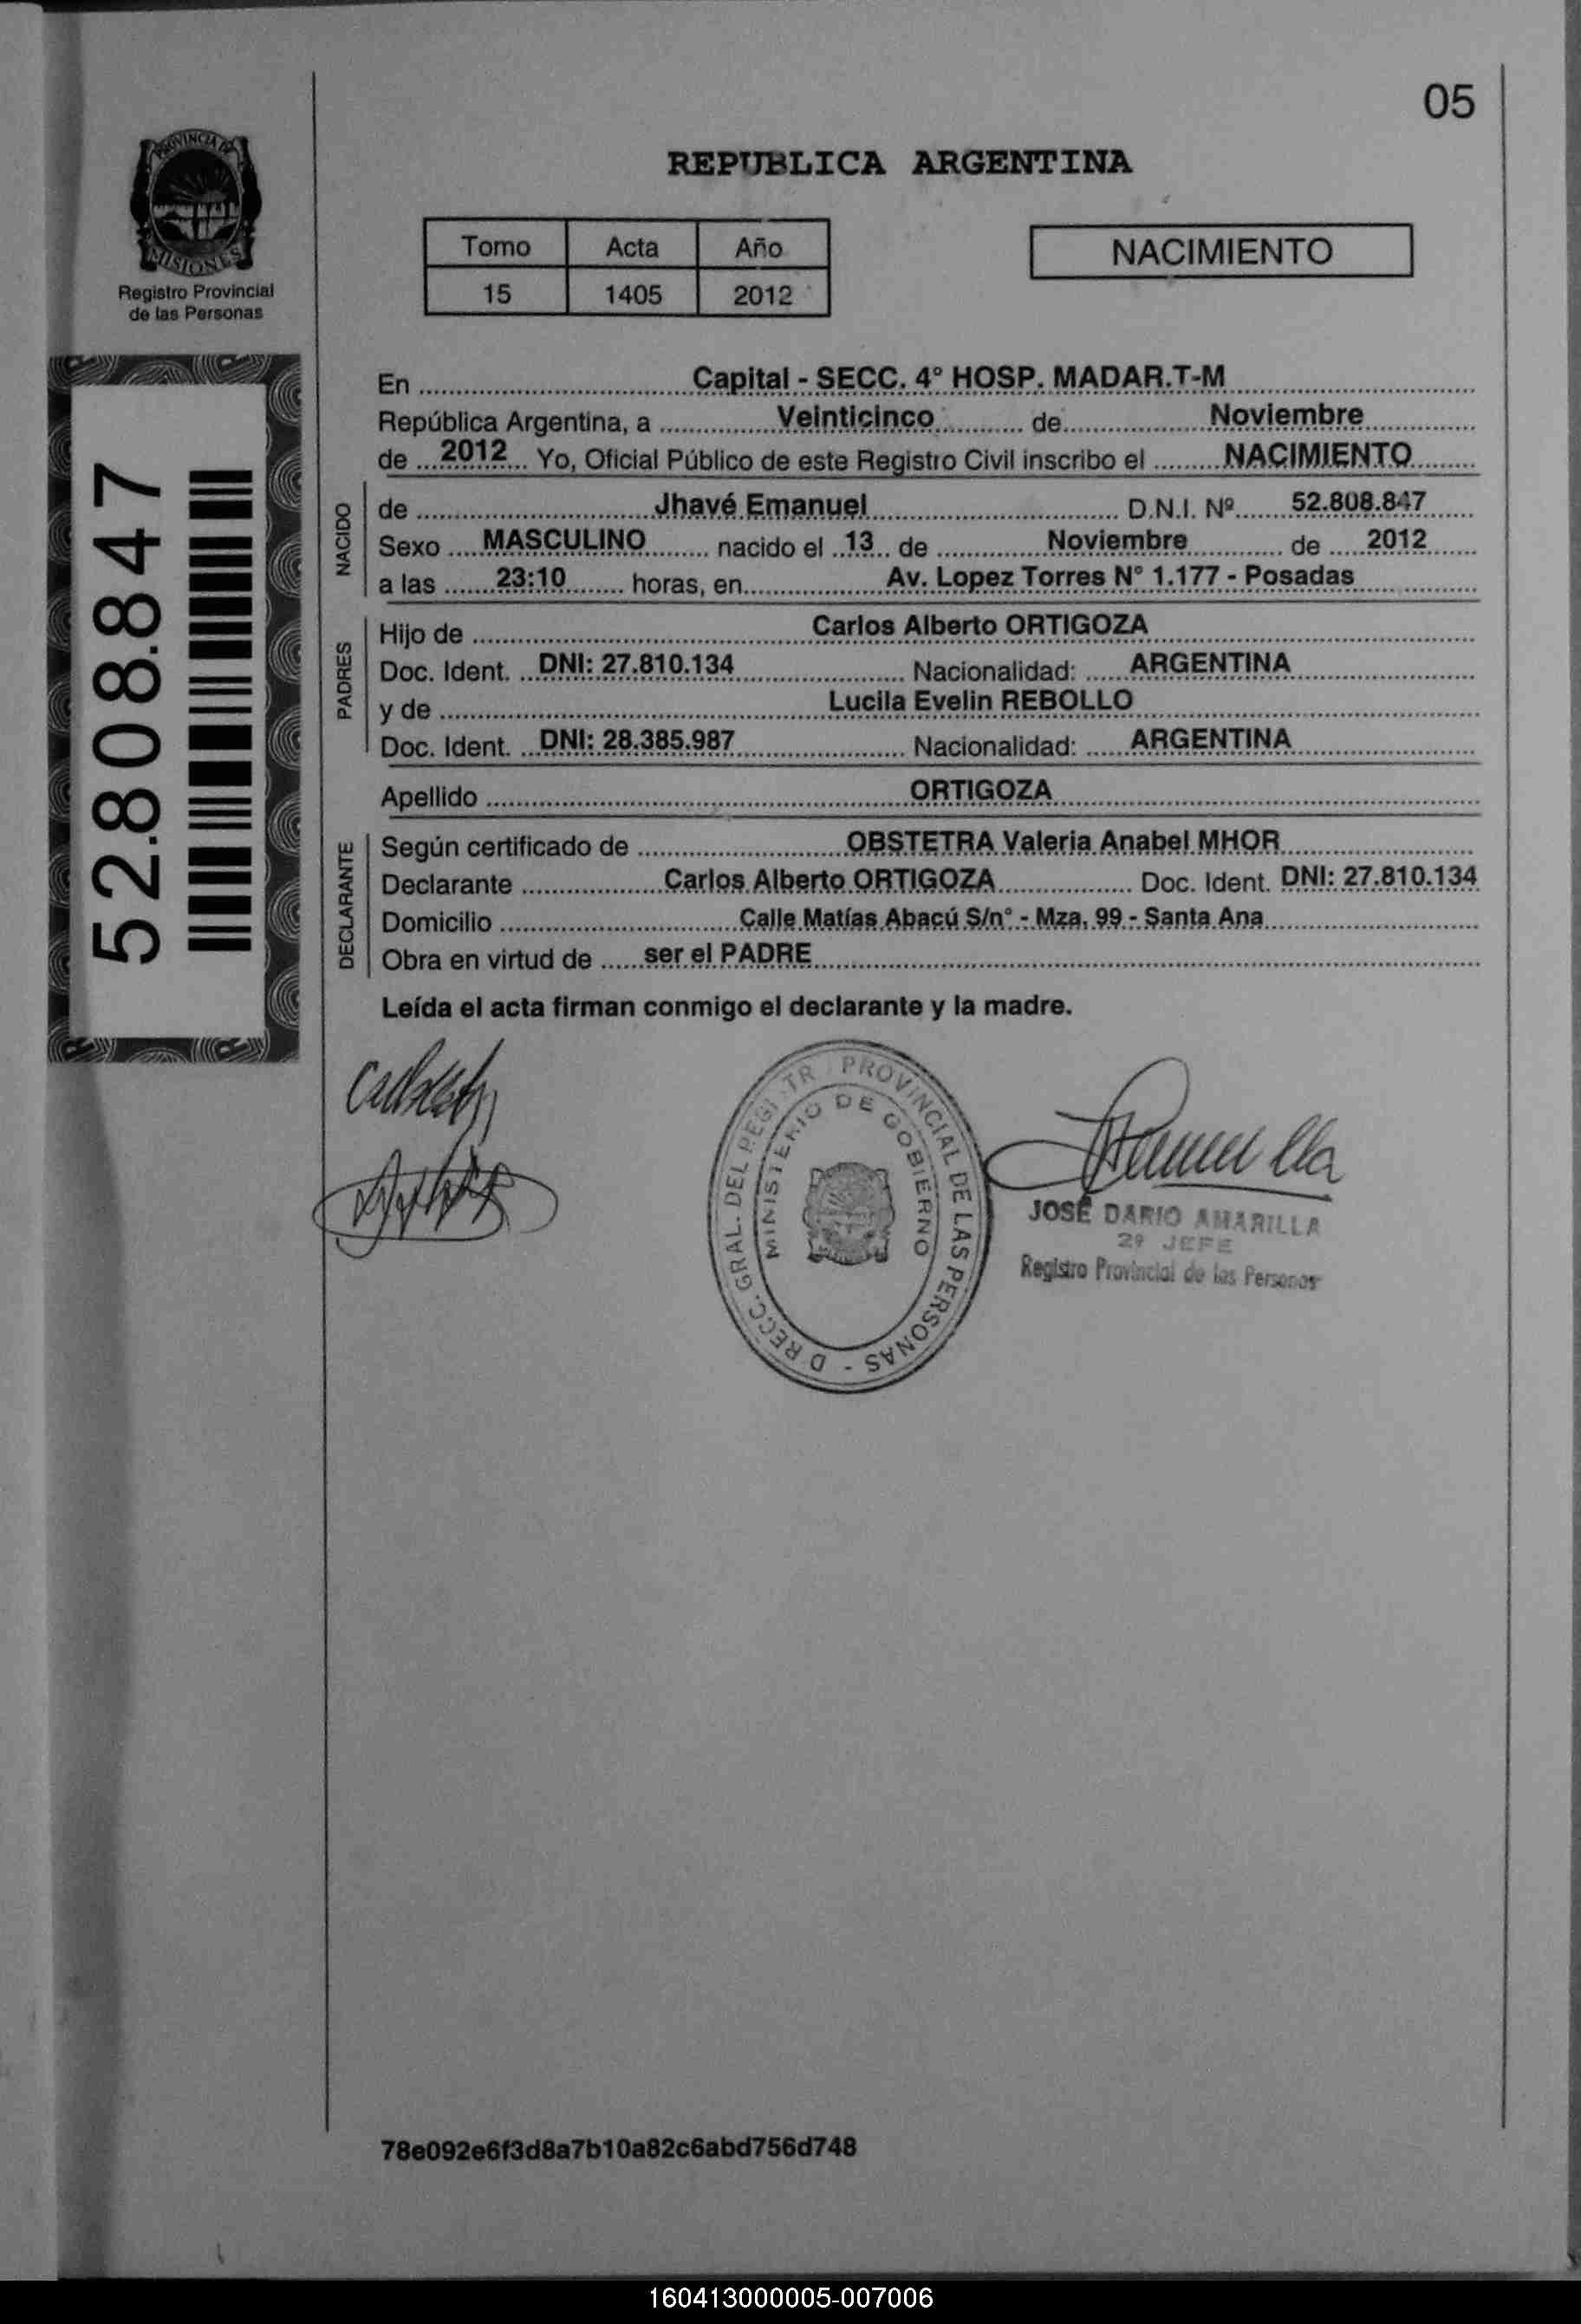 05
PROVINCIA DE
MISIONES
Registro Provincial
de las Personas
REPUBLICA ARGENTINA
Tomo Acta Año
15 1405 2012
NACIMIENTO
52.808.847
En Capital - SECC. 4° HOSP. MADAR.T-M
República Argentina, a Veinticinco de Noviembre
de 2012 Yo, Oficial Público de este Registro Civil inscribo el NACIMIENTO
NACIDO
de Jhavé Emanuel D.N.I. Nº 52.808.847
Sexo MASCULINO nacido el 13 de Noviembre de 2012
a las 23:10 horas, en Av. Lopez Torres N° 1.177 - Posadas
PADRES
Hijo de Carlos Alberto ORTIGOZA
Doc. Ident. DNI: 27.810.134 Nacionalidad: ARGENTINA
y de Lucila Evelin REBOLLO
Doc. Ident. DNI: 28.385.987 Nacionalidad: ARGENTINA
Apellido ORTIGOZA
DECLARANTE
Según certificado de OBSTETRA Valeria Anabel MHOR
Declarante Carlos Alberto ORTIGOZA Doc. Ident. DNI: 27.810.134
Domicilio Calle Matías Abacú S/n° - Mza. 99 - Santa Ana
Obra en virtud de ser el PADRE
Leída el acta firman conmigo el declarante y la madre.
PROVINCIAL DE LAS PERSONAS -
GRAL. DEL
MINISTERIO DE GOBIERNO
JOSÉ DARIO AMARILLA
2º JEFE
Registro Provincial de las Personas
78e092e6f3d8a7b10a82c6abd756d748
160413000005-007006